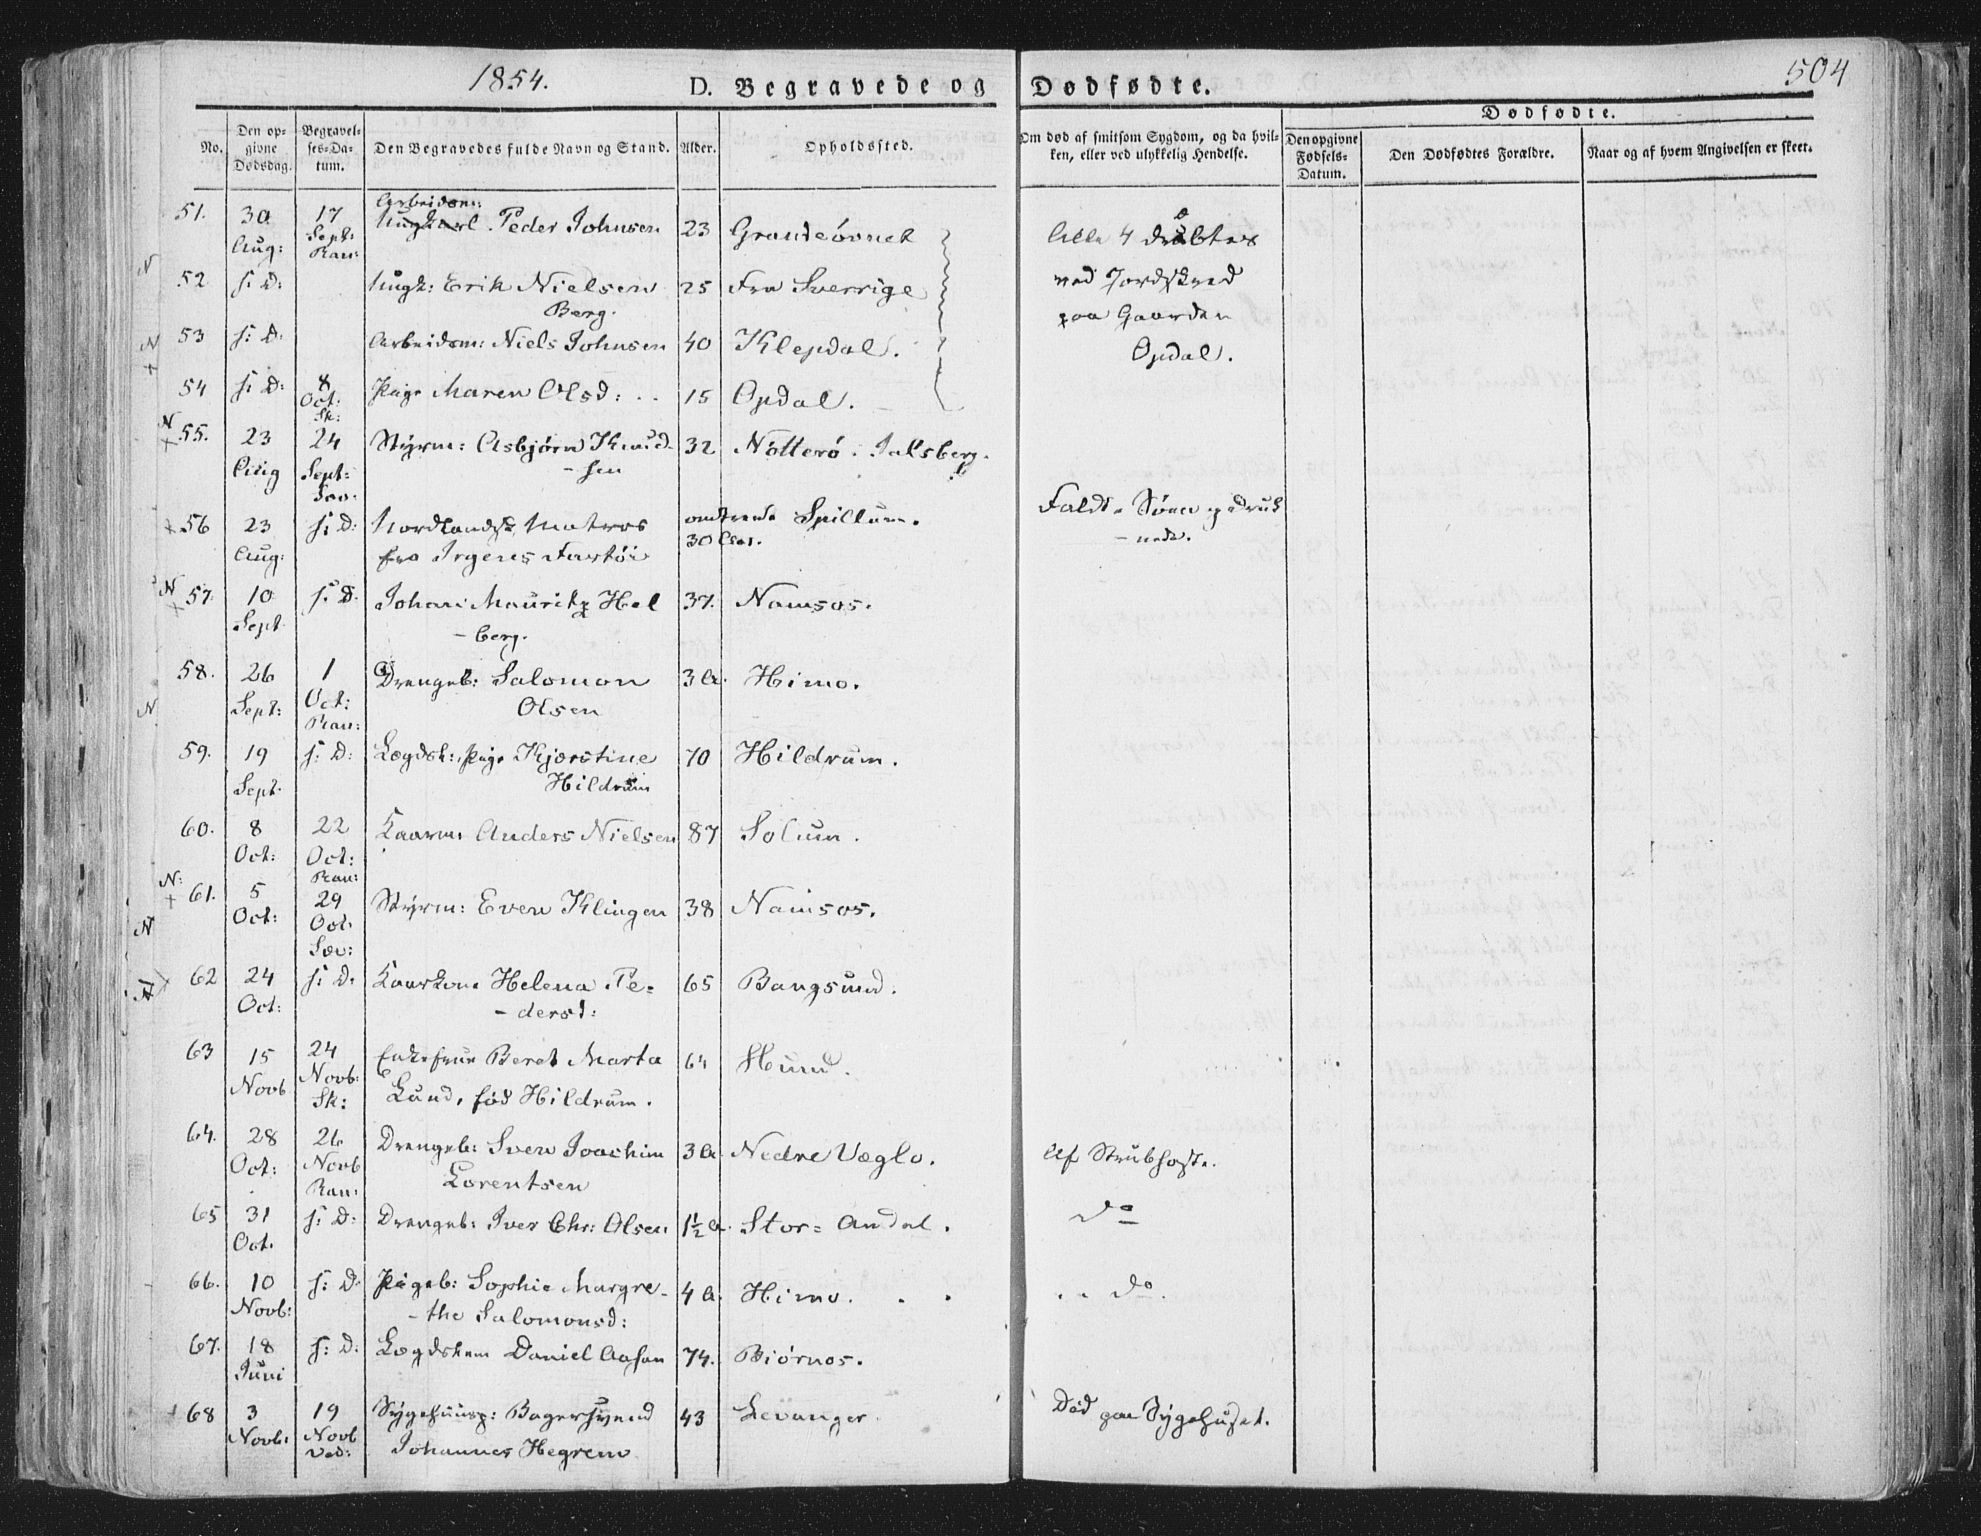 1854.
D. Begravede og Dødfødte.
504
Dødfødte.
No.
Den opgivne Dødsdag.
Begravelses-Datum.
Den Begravedes fulde Navn og Stand.
Alder.
Opholdssted.
Om død af smitsom Sygdom, og da hvilken, eller ved ulykkelig Hendelse.
Den opgivne Fødsels-Datum.
Den Dødfødtes Forældre.
Naar og af hvem Angivelsen er skeet.
Arbeidsm:
51. 30 Aug: 17 Sept: Ran: Ungkarl Peder Johnsen 23 Grandeövnet Alle 4 dræbtes
N 52 s: D: Ungk: Erik Nielsen Berg. 25 Fra Sverrige ved Jordskred
N 53 s: D: Arbeidsm: Niels Johnsen 40 Klepdal. paa Gaarden
+ 54 s: D: 8 Oct: Sk: Pige Maren Olsd: 15 Opdal. Opdal.
N + 55. 23 Aug 24 Sept: Sæv: Styrm: Asbjørn Knud-
-sen 32 Nötterö. Jalsberg.
+ 56 23 Aug: s: D: Nordlandsk Matros
fra Irgens Fartöi omtrent 30 Aar. Spillum. Faldt i Søen og druk
-nede.
N + 57. 10 Sept s: D: Johan Mauritz Hel
-berg. 37. Namsos.
58. 26 Sept: 1 Oct: Ran: Drengeb: Salomon
Olsen 3 A. Himo.
N
59. 19 Sept. s: D: Lægdsl: Pige Kjerstine
Hildrum 70 Hildrum.
60. 8 Oct: 22 Oct: Ran: Kaarm: Anders Nielsen 87 Solum.
N: + 61. 5 Oct: 29 Oct: Sæv: Styrm: Even Klingen 38 Namsos.
N
N 62 24 Oct: s: D: Kaarkone Helena Pe-
-dersd: 65 Bangsund.
63 15 Novb 24 Novb: Sk: Enkefrue Beret Marta
Lund, fød Hildrum. 64 Hund.
64. 28 Oct: 26 Novb Ran: Drengeb: Sven Joachim
Lorentsen 3 A. Nedre Væglo. Af Strubhoste.
65 31 Oct. s: D: Drengeb: Iver Chr: Olsen 1½ A. Stor-Andal. do
66. 10 Novb: s: D: Pigeb: Sophie Margre-
-the Salomonsd: 4 A. Himo. do.
67. 18 Juni s: D: Lægdslem Daniel Aasan 74. Biörnos.
+ 68 3 Novb: 19 Novb Ved: Bagersvend
Johannes Hegrem 43 Levanger. Død paa Sygehuset.